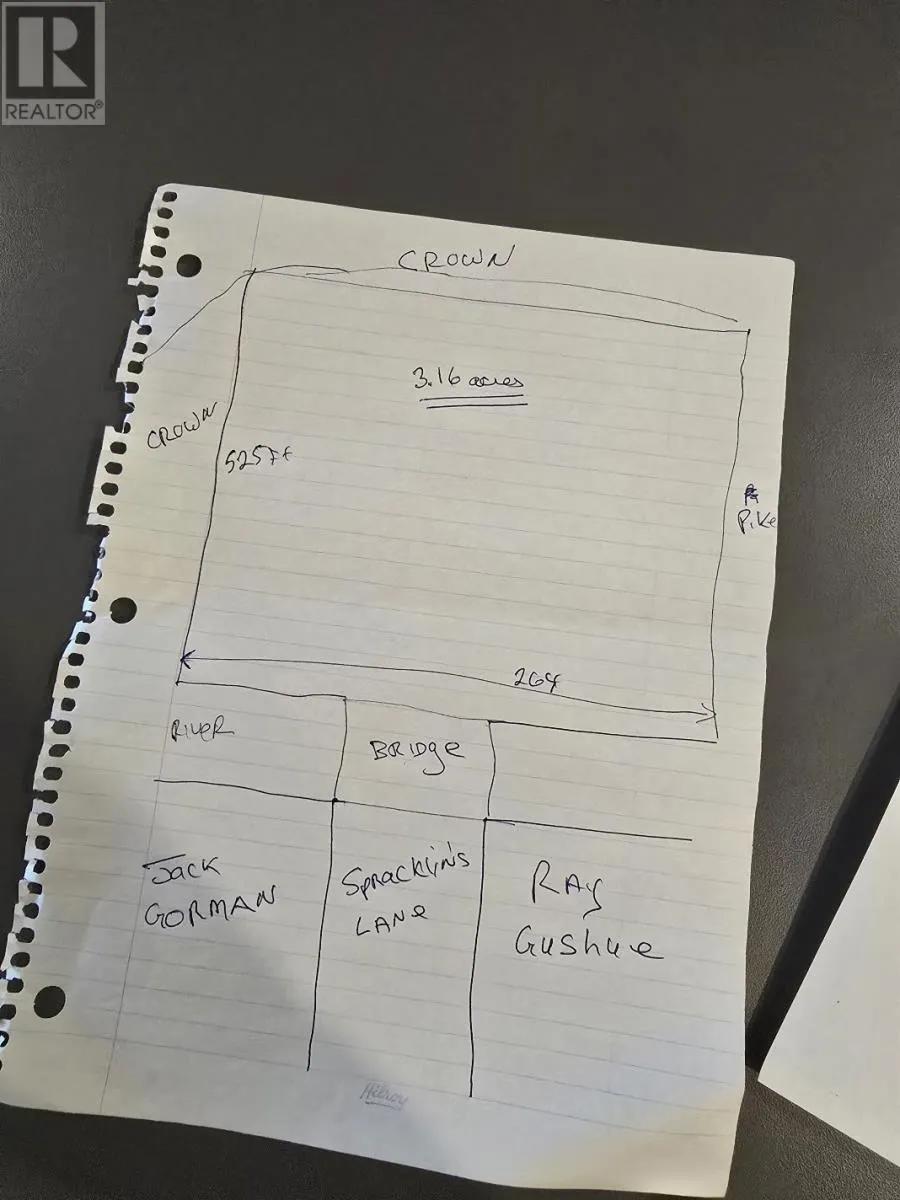 REALTOR®
CROWN
3.16 acres
CROWN
525Ft
Pike
264
RIVER
BRIDge
JACK
GORMAN
Spracklin's
LANe
RAy
Gushue
Hilroy